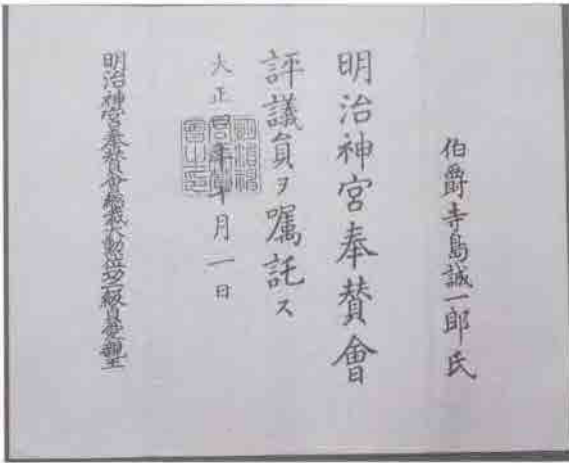 伯爵寺島誠一郎氏
明治神宮奉賛會
評議員ヲ嘱託ス
大正 年十月一日
明治神宮奉賛會総裁大勲位功二級貞愛親王